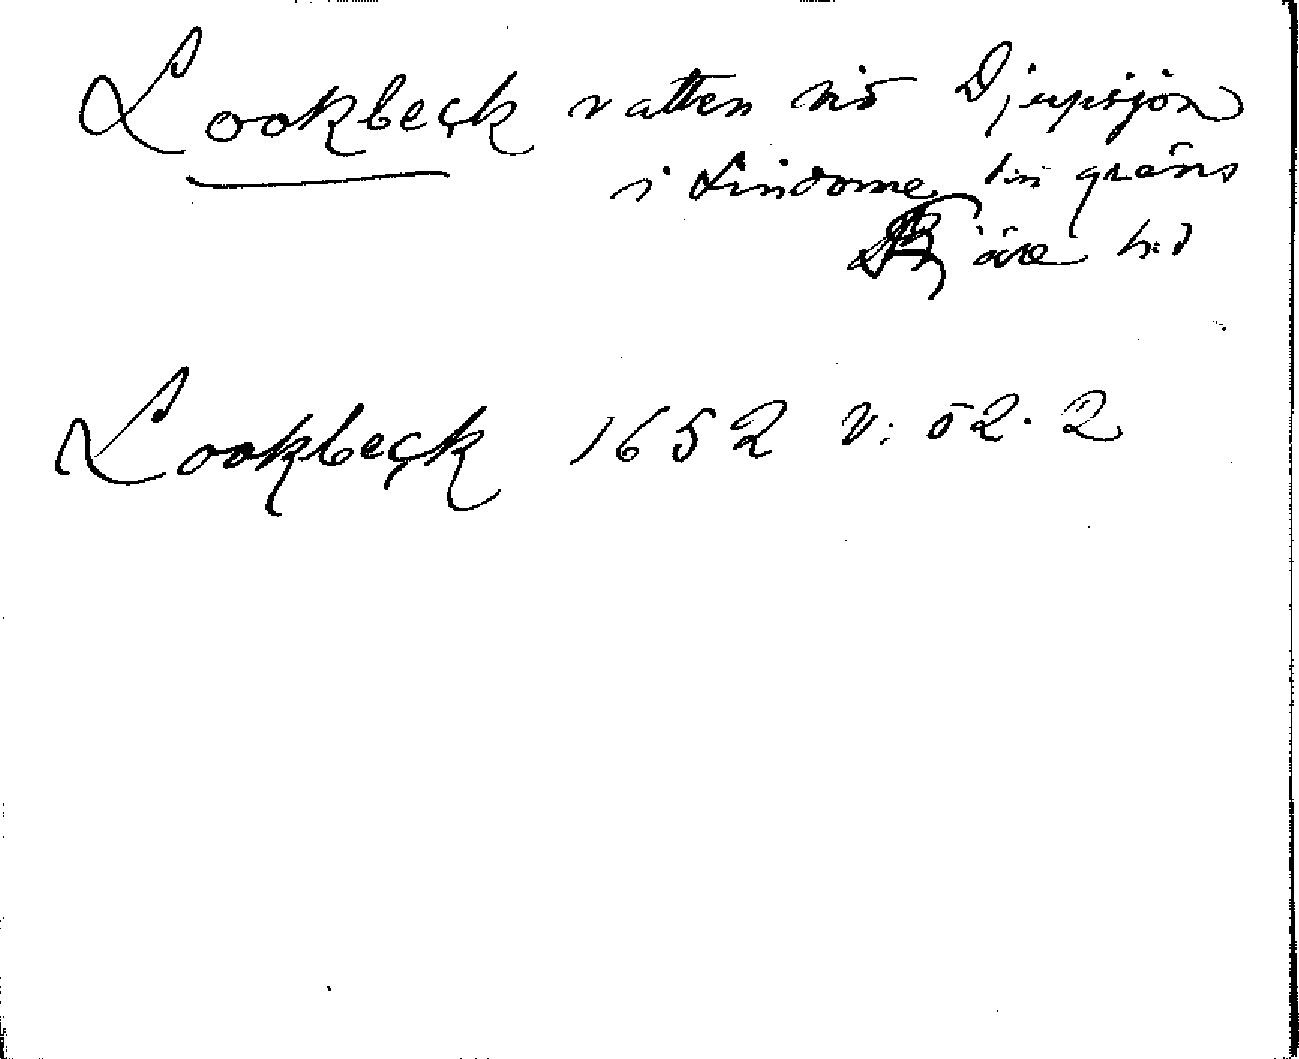 Lookbeck vatten vid Djupsjön
i Lindome, till gräns
Fjäre h:d
Lookbeck 1652 V: 52. 2